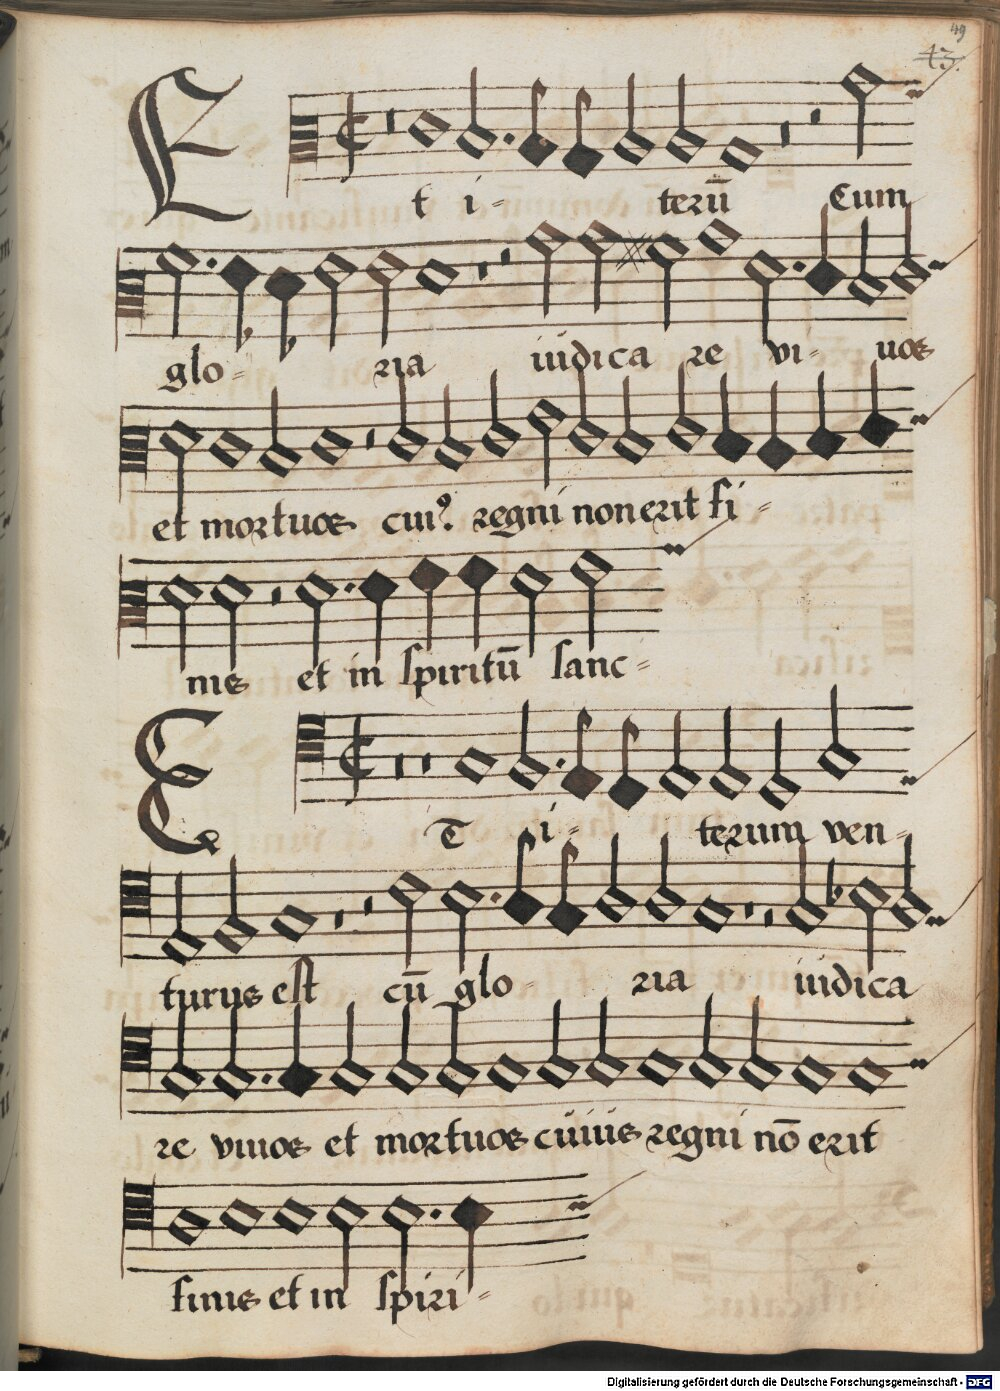 49
43.
Et i- terū Cum
glo- ria iudica re vi- uos
et mortuos cui⁹. regni non erit fi-
nis et in spiritū sanc-
ET i- terum ven-
turus est cū glo- ria iudica
re viuos et mortuos cuiuis regni nō erit
finis et in spiri-
Digitalisierung gefördert durch die Deutsche Forschungsgemeinschaft - DFG